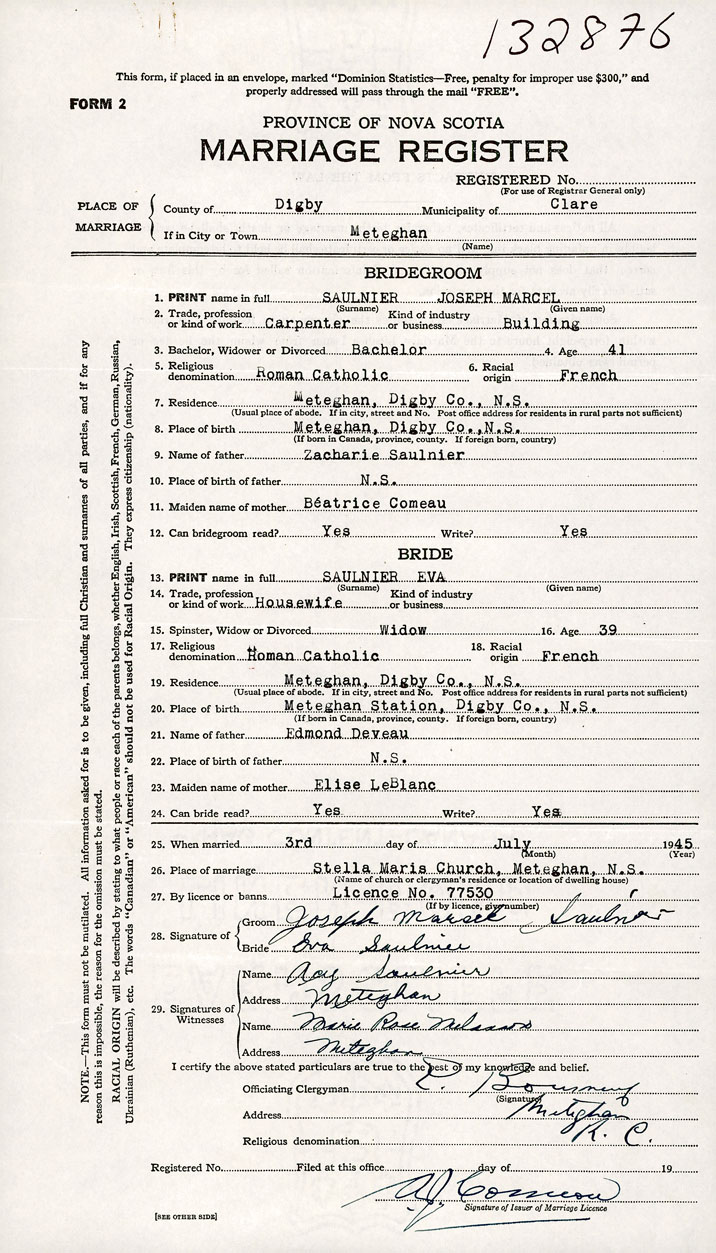 132876
This form, if placed in an envelope, marked "Dominion Statistics—Free, penalty for improper use $300," and
properly addressed will pass through the mail "FREE".
FORM 2
PROVINCE OF NOVA SCOTIA
MARRIAGE REGISTER
REGISTERED No.
(For use of Registrar General only)
PLACE OF MARRIAGE
County of Digby Municipality of Clare
If in City or Town Meteghan
(Name)
BRIDEGROOM
1. PRINT name in full SAULNIER JOSEPH MARCEL
(Surname) (Given name)
2. Trade, profession or kind of work Carpenter Kind of industry or business Building
3. Bachelor, Widower or Divorced Bachelor 4. Age 41
5. Religious denomination Roman Catholic 6. Racial origin French
7. Residence Meteghan, Digby Co., N.S.
(Usual place of abode. If in city, street and No. Post office address for residents in rural parts not sufficient)
8. Place of birth Meteghan, Digby Co.,N.S.
(If born in Canada, province, county. If foreign born, country)
9. Name of father Zacharie Saulnier
10. Place of birth of father N.S.
11. Maiden name of mother Béatrice Comeau
12. Can bridegroom read? Yes Write? Yes
BRIDE
13. PRINT name in full SAULNIER EVA
(Surname) (Given name)
14. Trade, profession or kind of work Housewife Kind of industry or business
15. Spinster, Widow or Divorced Widow 16. Age 39
17. Religious denomination Roman Catholic 18. Racial origin French
19. Residence Meteghan, Digby Co., N.S.
(Usual place of abode. If in city, street and No. Post office address for residents in rural parts not sufficient)
20. Place of birth Meteghan Station, Digby Co., N.S.
(If born in Canada, province, county. If foreign born, country)
21. Name of father Edmond Deveau
22. Place of birth of father N.S.
23. Maiden name of mother Elise LeBlanc
24. Can bride read? Yes Write? Yes
25. When married 3rd day of July 1945
(Month) (Year)
26. Place of marriage Stella Maris Church, Meteghan, N.S.
(Name of church or clergyman's residence or location of dwelling house)
27. By licence or banns Licence No. 77530
(If by licence, give number)
28. Signature of
Groom Joseph Marsel Saulnier
Bride Eva Saulnier
29. Signatures of Witnesses
Name Saulnier
Address Meteghan
Name Marie Rose
Address Meteghan
I certify the above stated particulars are true to the best of my knowledge and belief.
Officiating Clergyman
(Signature)
Address Meteghan
Religious denomination R. C.
Registered No. Filed at this office day of 19
A J Comeau
Signature of Issuer of Marriage Licence
[SEE OTHER SIDE]
NOTE.—This form must not be mutilated. All information asked for is to be given, including full Christian and surnames of all parties, and if for any
reason this is impossible, the reason for the omission must be stated.
RACIAL ORIGIN will be described by stating to what people or race each of the parents belongs, whether English, Irish, Scottish, French, German, Russian,
Ukrainian (Ruthenian), etc. The words "Canadian" or "American" should not be used for Racial Origin. They express citizenship (nationality).